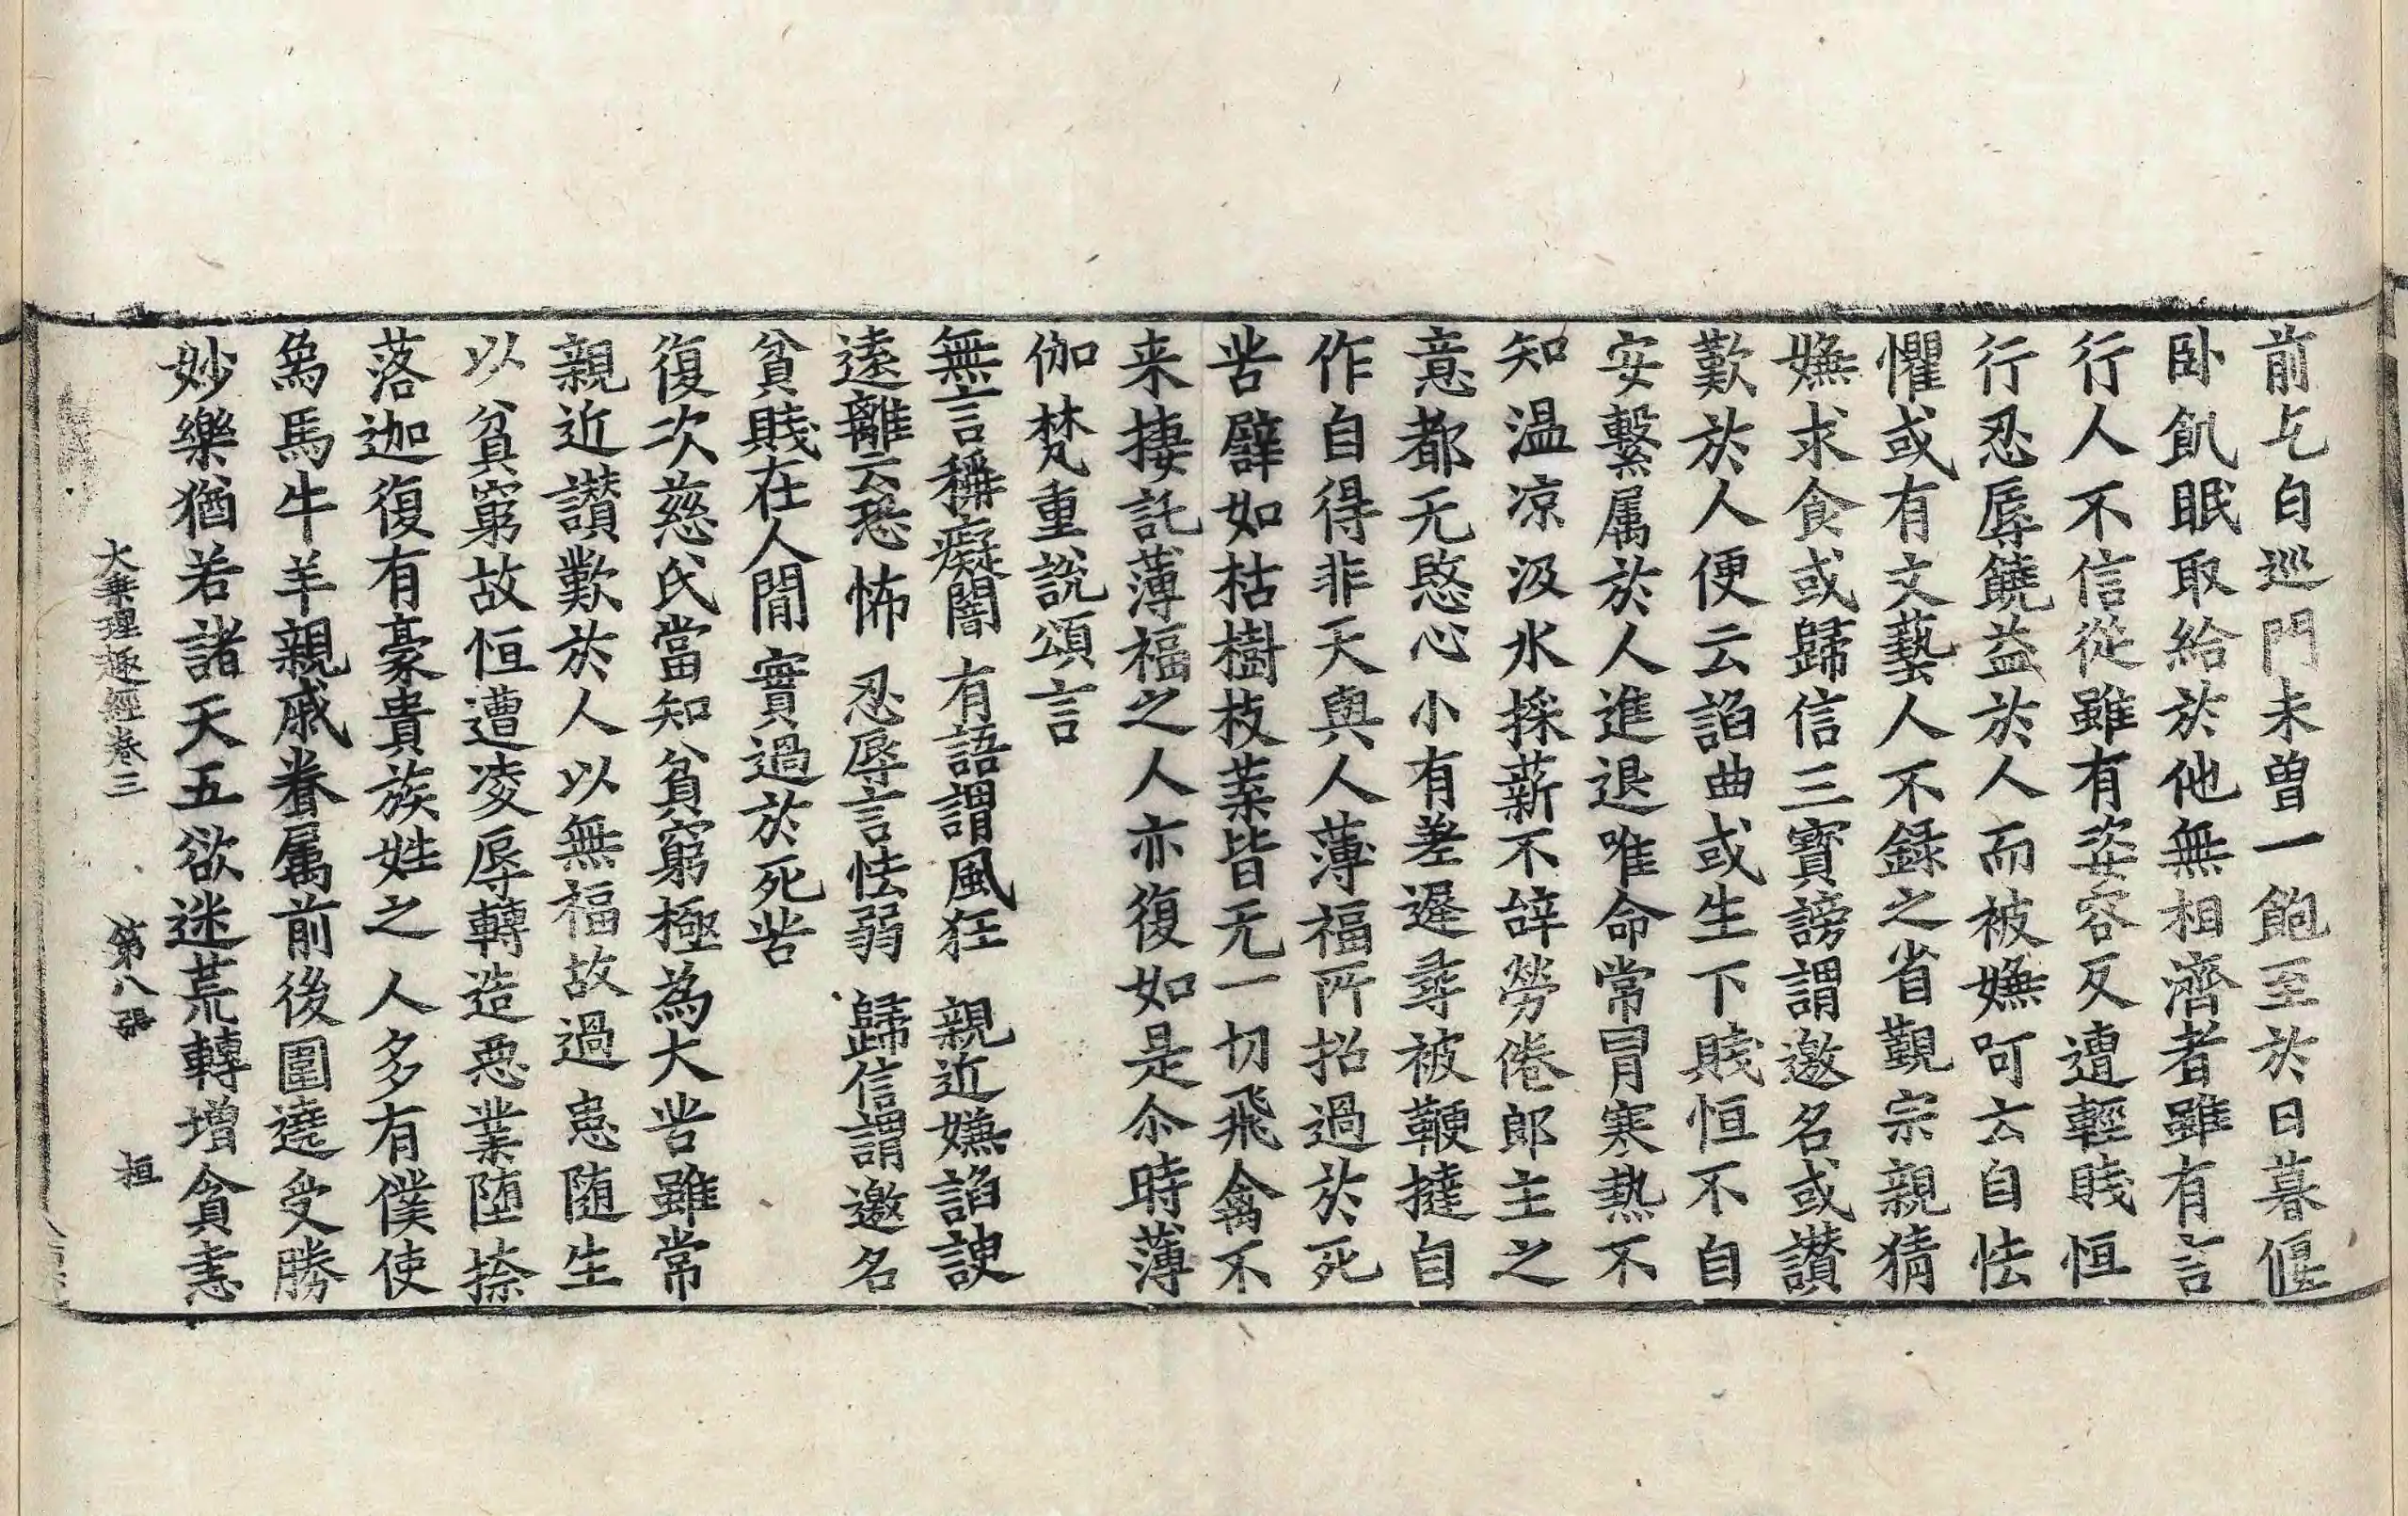 前乞白巡門未曽一飽至於日暮偃
卧飢眠取給於他無相濟者雖有言
行人不信從雖有姿容反遭輕賤恒
行忍辱饒益於人而被嫌呵云自怯
懼或有文藝人不録之省覲宗親猜
嫌求食或歸信三寶謗謂邀名或讃
歎於人便云諂曲或生下賤恒不自
安繫属於人進退唯命常冒寒熱不
知温凉汲水採薪不辝勞倦郎主之
意都无愍心小有差遲尋被鞭撻自
作自得非天與人薄福所招過於死
苦譬如枯樹枝葉皆无一切飛禽不
来捿託薄福之人亦復如是尒時薄
伽梵重說頌言
無言稱癡闇 有語謂風狂 親近嫌諂諛
遠離云恐怖 忍辱言怯弱 歸信謂邀名
貧賤在人間 實過於死苦
復次慈氏當知貧窮極為大苦雖常
親近讃歎於人以無福故過患随生
以貧窮故恒遭凌辱轉造惡業堕捺
落迦復有豪貴族姓之人多有僕使
為馬牛羊親戚眷属前後圍遶受勝
妙樂猶若諸天五欲迷荒轉增貪恚
大乗理趣經卷三 第八張 桓